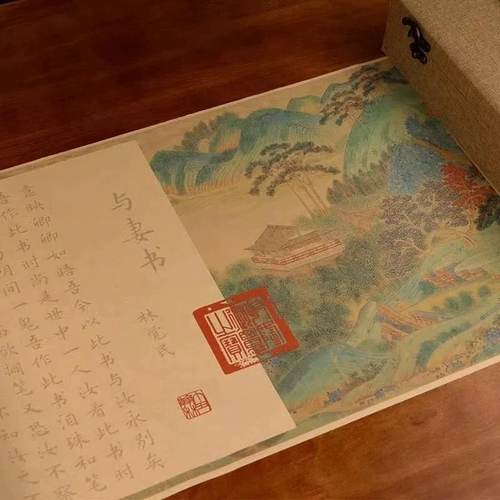 与妻书
林觉民
意映卿卿如晤吾今以此书与汝永别矣
吾作此书时尚是世中一人汝看此书时
阴间一鬼吾作此书泪珠和笔
欲搁笔又恐汝不察
不知汝之